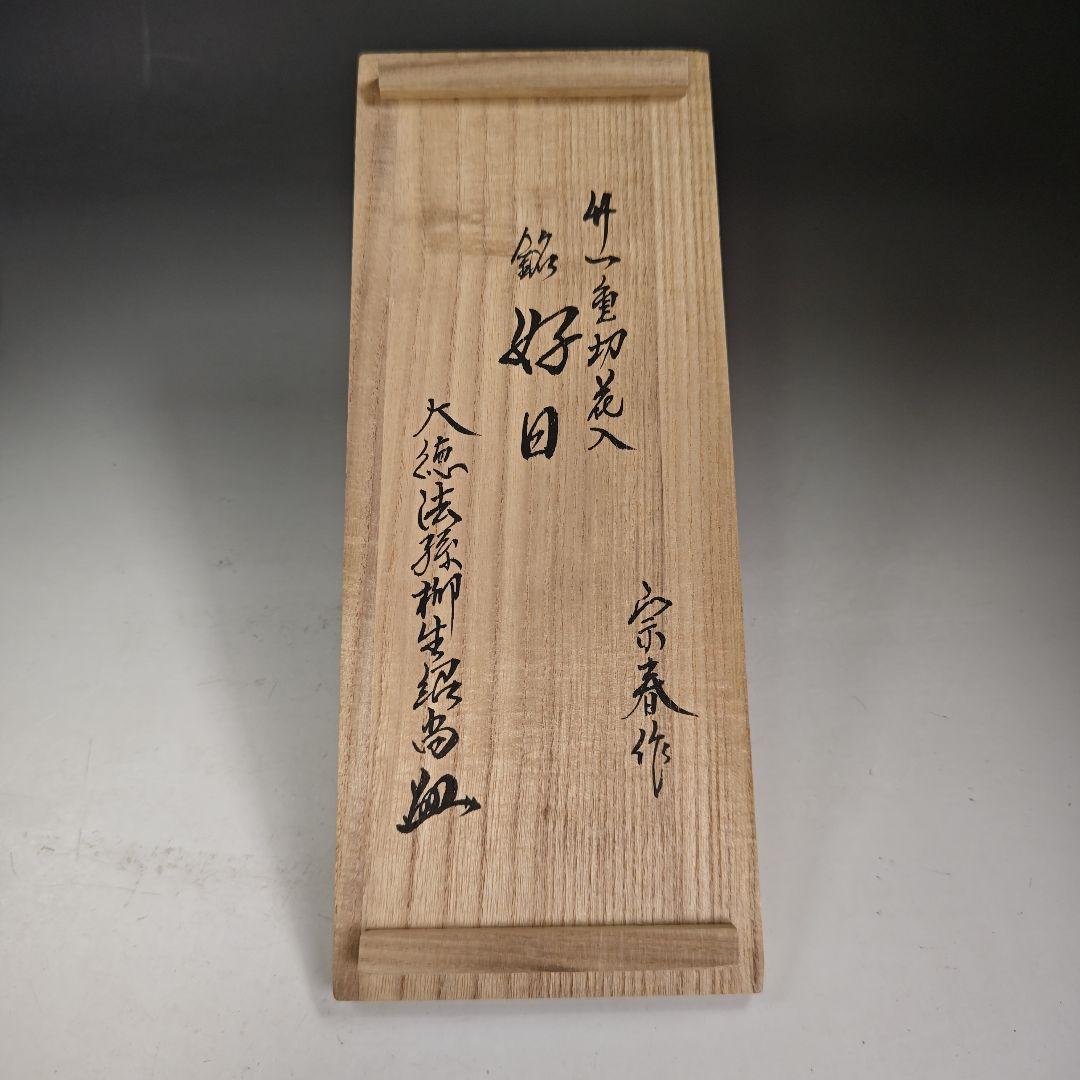 竹一重切花入
宗春作
銘 好日
大徳法孫柳生紹尚